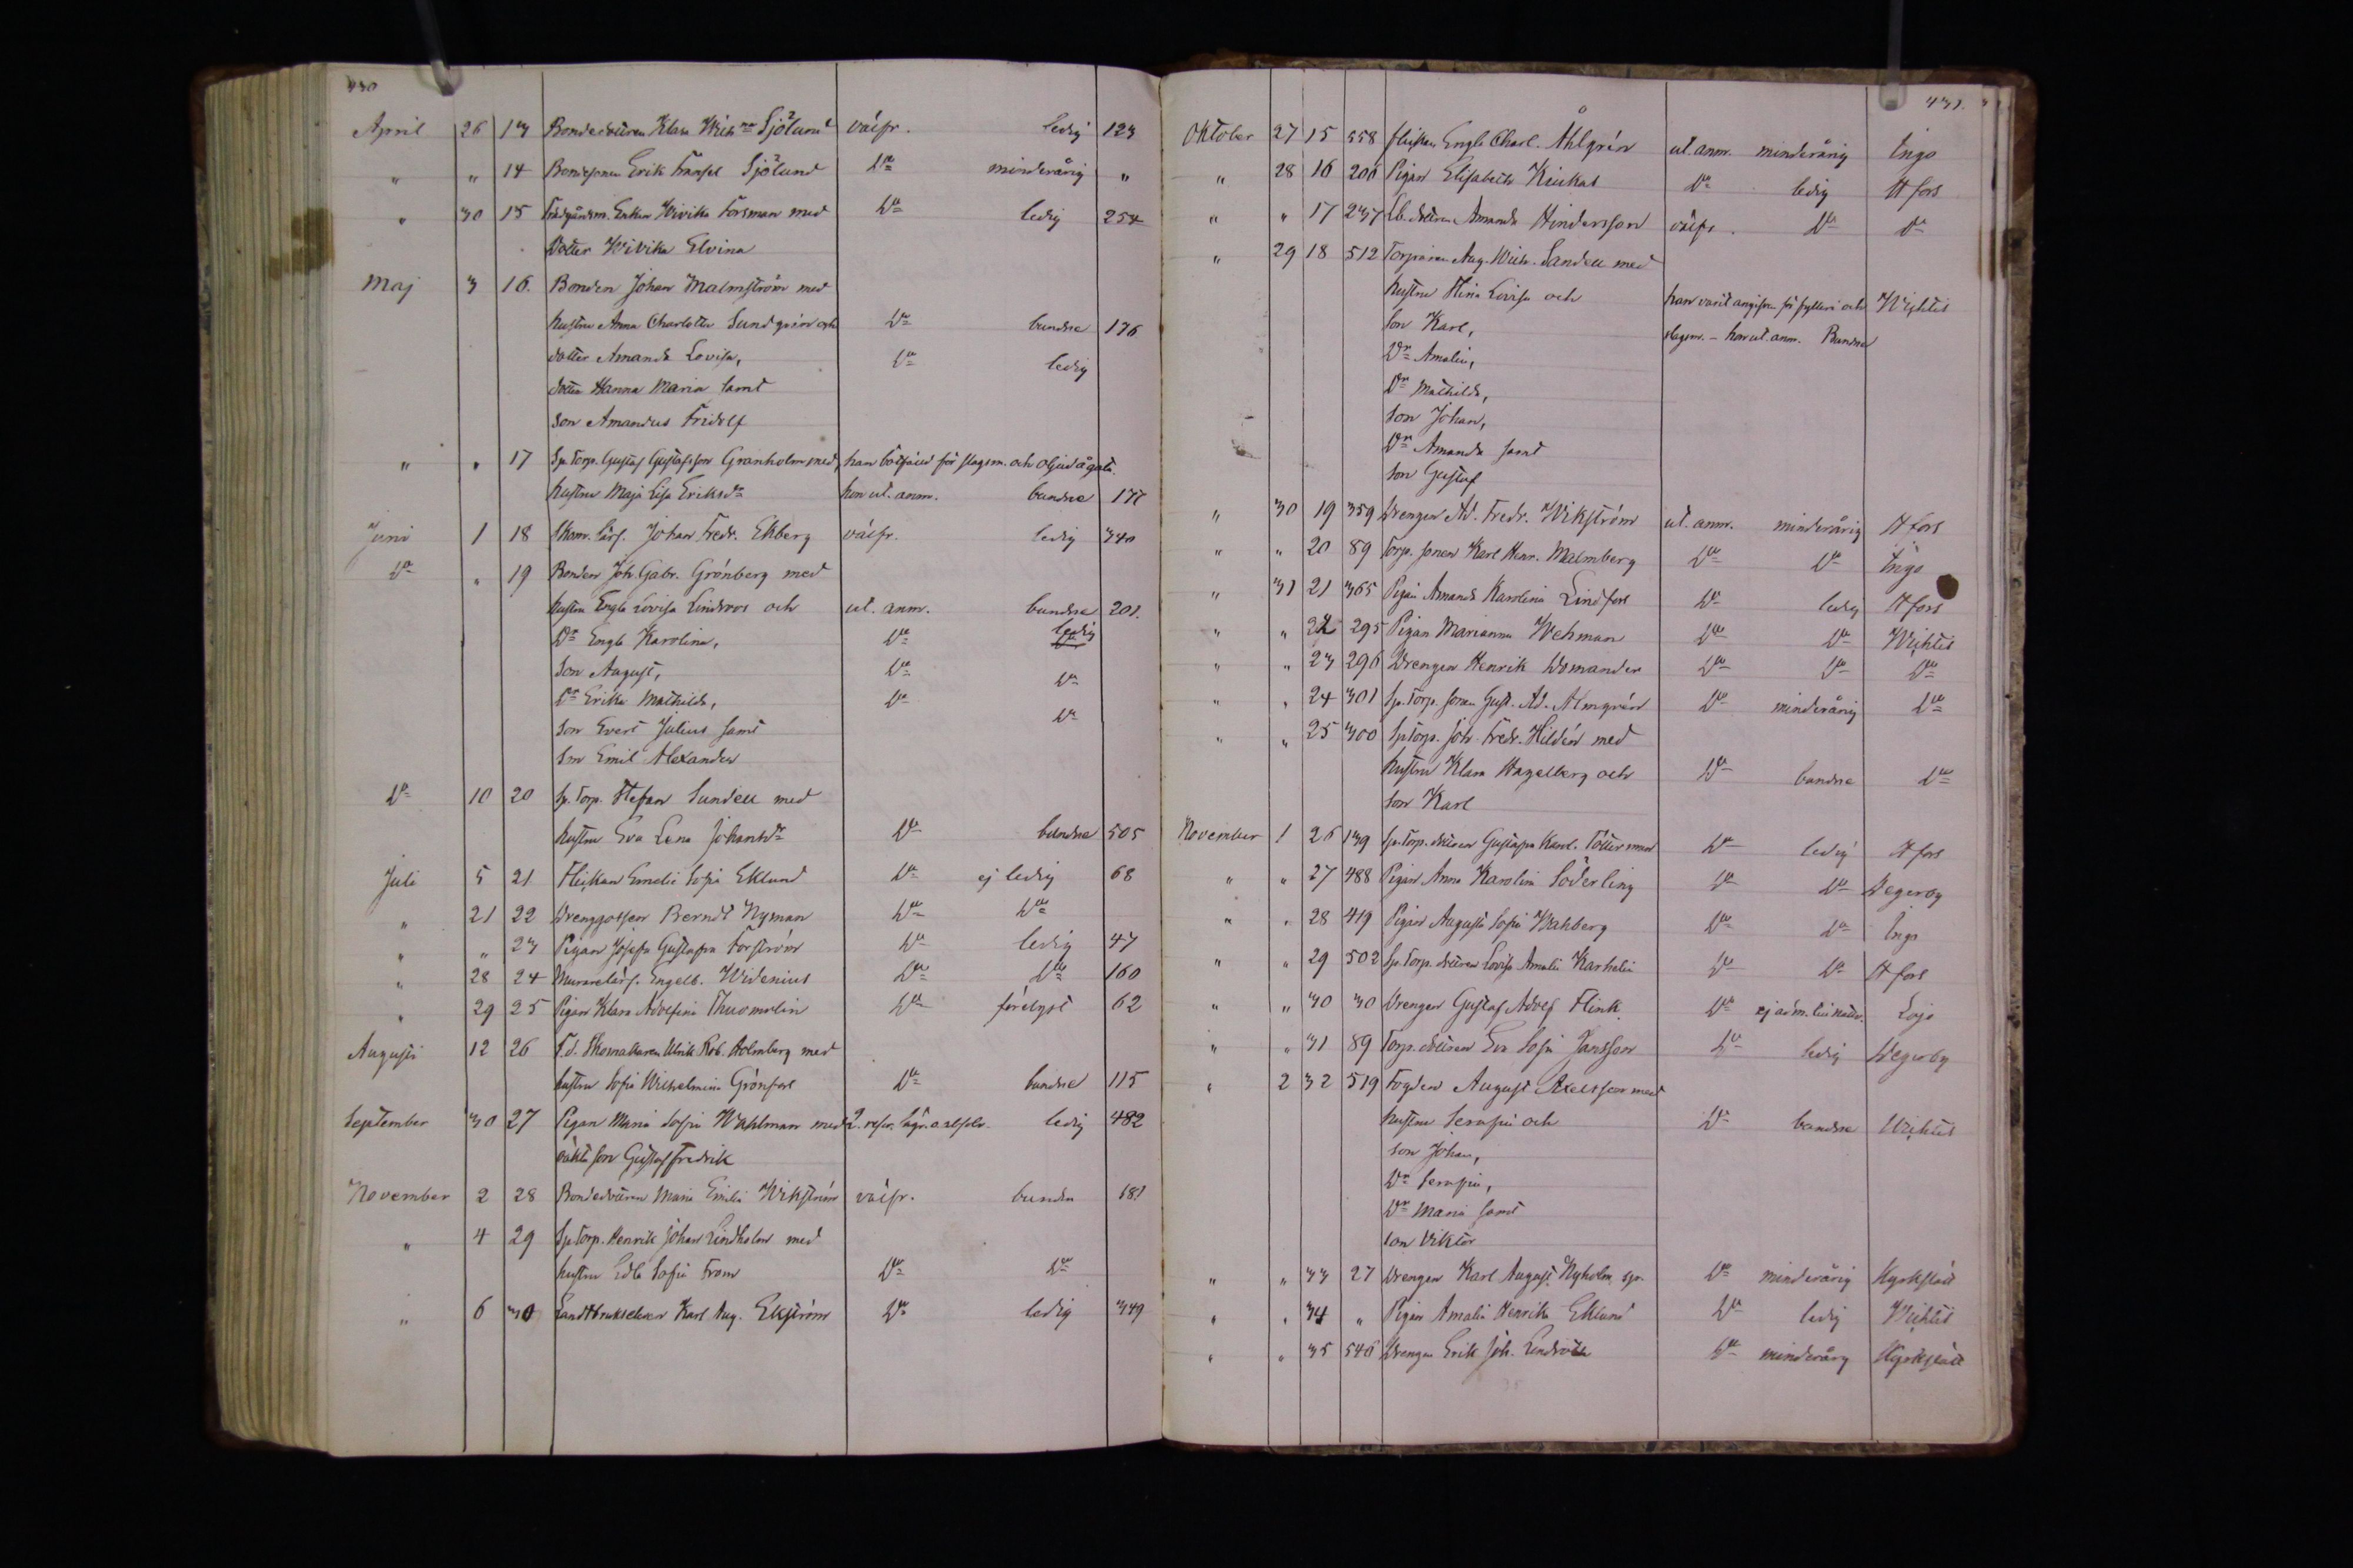 430
April 26 13 Bondedottren Klara Wilh:na Sjölund välfr. ledig 123
" " 14 Bondesonen Erik Fransel Sjölund D:o minderårig "
" 30 15 Trädgårdsm. Enkan Wivika Forsman med D:o ledig 254
Dotter Wivika Elvina
Maj 3 16. Bonden Johan Malmström med
hustru Anna Charlotta Sundgrén och D:o bundne 176
dotter Amanda Lovisa, D:o ledig
dotter Hanna Maria samt
son Amandus Fridolf
" " 17 Sp. Torp. Gustaf Gustafsson Granholm med, han bötfäld för slagsm. och oljud å gata.
hustru Maja Lisa Eriksd:r hon ut. anm. bundne 177
Juni 1 18 Skom. lärl. Johan Fredr. Ekberg välfr. ledig 340
D:o " 19 Bonden Joh. Gabr. Grönberg med
hustru Engla Lovisa Lindroos och ut. anm. bundne 201.
D:r Engla Karolina, D:o ledig
son August, D:o D:o
D:r Erika Mathilda, D:o D:o
son Evert Julius samt
son Emil Alexander
D:o 10 20 Sp. Torp. Stefan Sundell med
hustru Eva Lena Johansd:r D:o bundne 505
Juli 5 21 Flickan Emelie Sofia Eklund D:o ej ledig 68
" 21 22 Drenggossen Berndt Nyman D:o D:o
" " 23 Pigan Josefa Gustafva Forström D:o ledig 47
" 28 24 Murarelärl. Engelb. Widenius D:o D:o 160
" 29 25 Pigan Klara Adolfina Thuomolin D:o förelyst 62
Augusti 12 26 F.d. Skomakaren Ulrik Rob. Holmberg med
hustru Sofia Wilhelmina Grönfors D:o bundne 115
September 30 27 Pigan Maria Sofia Wahlman med 2. resor lägr. o. absolv. ledig 482
oäkta son Gustaf Fredrik
November 2 28 Bondedottren Maria Emilia Wikström välfr. bunden 181
" 4 29 Sp Torp. Henrik Johan Lindholm med
hustru Edla Sofia From D:o D:o
" 6 30 Landtbrukselever Karl Aug. Ekström D:o ledig 349
431.
Oktober 27 15 558 flickan Engla Charl. Åhlgrén ut. anm. minderårig Ingo
" 28 16 206 Pigan Elisabeth Kiukas D:o ledig H fors
" " 17 237 Lb. dottren Amanda Hindersson välfr. D:o D:o
" 29 18 512 Torparen Aug. Wilh. Sandell med
hustru Stina Lovisa och han varit angifven för fylleri och Wichtis
son Karl, slagsm. - hon ut. anm. Bundne
D:r Amalia,
D:r Mathilda,
son Johan,
D:r Amanda samt
son Gustaf
" 30 19 359 Drengen Ad. Fredr. Wikström ut. anm. minderårig H fors
" " 20 89 Torp. sonen Karl Henr. Malmberg D:o D:o Ingo
" 31 21 365 Pigan Amanda Karolina Lindfors D:o ledig H fors
" " 22 295 Pigan Marianna Wehman D:o D:o Wichtis
" " 23 296 Drengen Henrik Domander D:o D:o D:o
" " 24 301 Sp. Torp. sonen Gust. Ad. Almgrén D:o minderårig D:o
" " 25 300 Sp Torp. Joh. Fredr. Hildén med
hustru Klara Hagelberg och D:o bundne D:o
son Karl
November 1 26 139 Sp. Torp. dottren Gustafva Karol. Tötterman D:o ledig H fors
" " 27 488 Pigan Anna Karolina Söderling D:o D:o Degerby
" " 28 419 Pigan Augusta Sofia Wahberg D:o D:o Ingo
" " 29 502 Sp. Torp. dottren Lovisa Amalia Karhelin D:o D:o H fors
" " 30 30 Drengen Gustaf Adolf Flink D:o ej adm. till nattv. Lojo
" " 31 89 Torp. dottren Eva Sofia Jansson D:o ledig Degerby
" 2 32 519 Fogden August Axelsson med
hustru Serafia och D:o bundne Wichtis
son Johan,
D:r Serafia,
D:r Maria samt
son Viktor
" " 33 27 Drengen Karl August Nyholm sp. D:o minderårig Kyrkslätt
" " 34 " Pigan Amalia Henrika Eklund D:o ledig Wichtis
" " 35 546 Drengen Erik Joh. Lindroth D:o minderårg Kyrkslätt